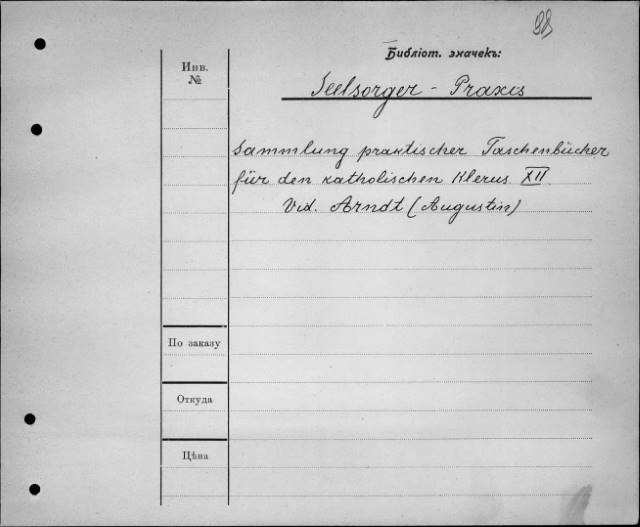 98
Библіот. значекъ:
Инв. №
Seelsorger - Praxis
Sammlung praktischer Taschenbücher
für den katholischen Klerus. XII.
Vid. Arndt (Augustin)
По заказу
Откуда
Цѣна